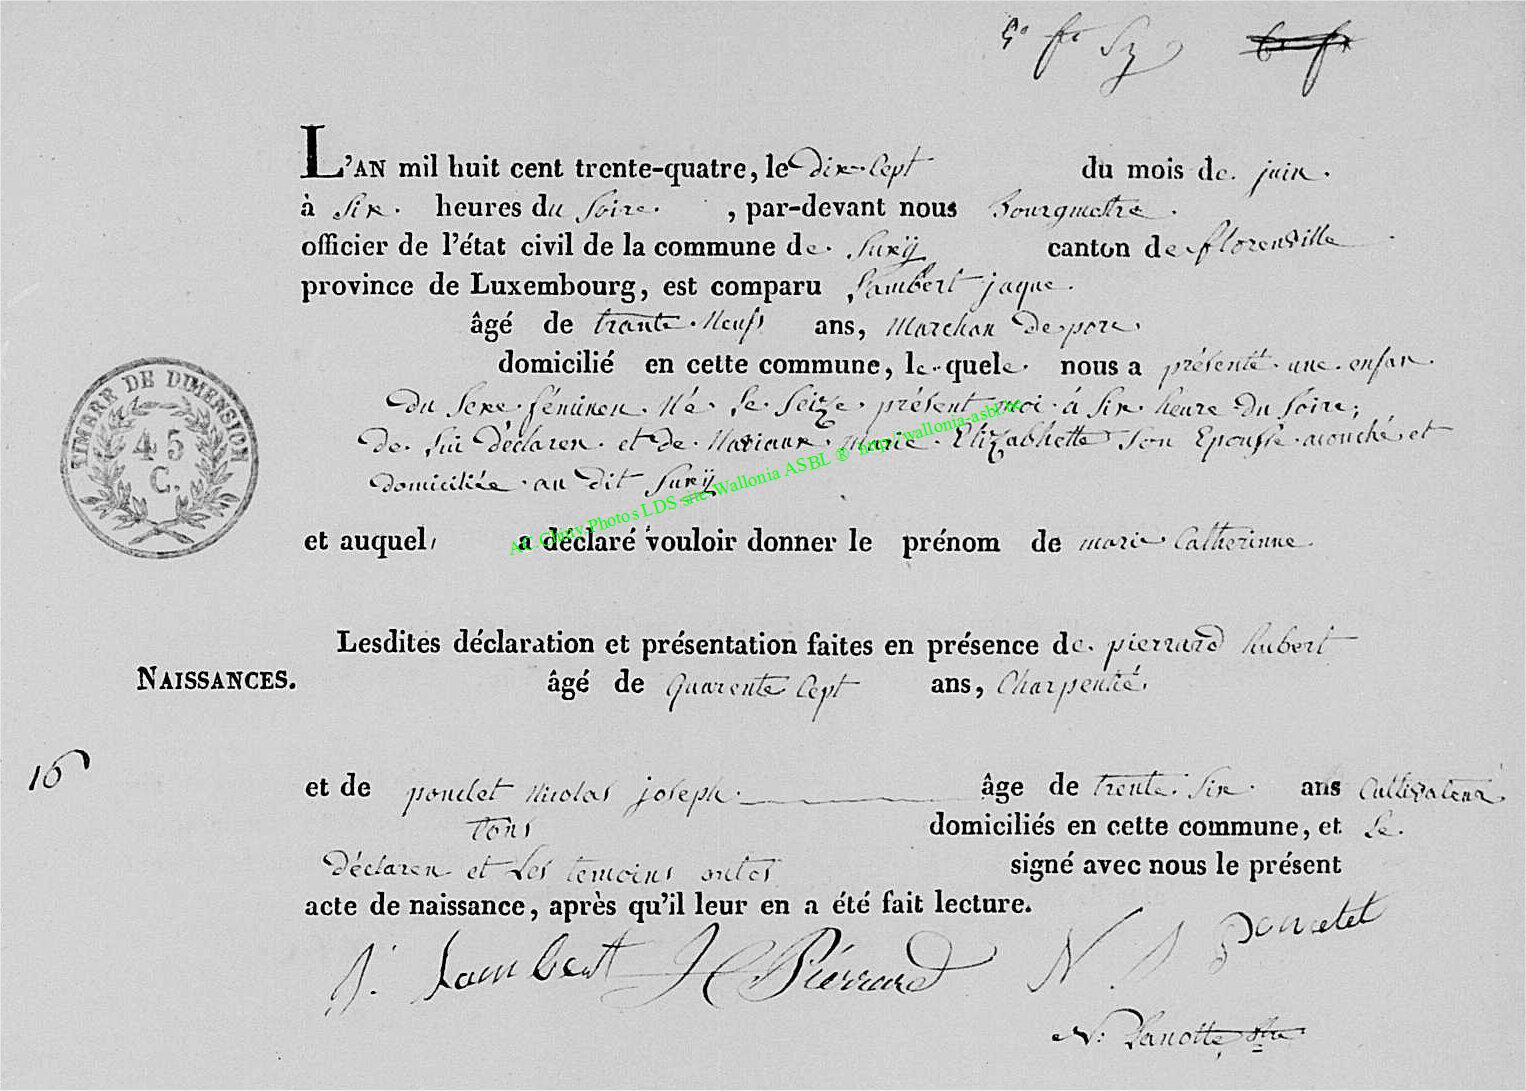 L'AN mil huit cent trente-quatre, le Dix-Sept du mois de juin.
à Six. heures du Soire. , par-devant nous Bourgmestre.
officier de l'état civil de la commune de Suxÿ canton de florenville
province de Luxembourg, est comparu Lambert jaque.
âgé de trante-Neufs ans, Marchan De porc.
domicilié en cette commune, le quele nous a présenté une enfan
Du Sexe féminen Né Le Seize présent moi à Six heure Du Soire;
De Lui Déclaren et De Mariaux Marie Elizabhette Son Epousse acouché et
Domiciliée au Dit Suxÿ
et auquel a déclaré vouloir donner le prénom de marie Catherinne
Lesdites déclaration et présentation faites en présence de pierrard hubert
NAISSANCES.
âgé de Quarente Sept ans, Charpentié
16
et de poncelet Nicolas joseph âge de trente Six ans Cultivateur
Tous domiciliés en cette commune, et Le
Déclaren et Les temoins ontes signé avec nous le présent
acte de naissance, après qu'il leur en a été fait lecture.
J. Lambert H Pierrard N J Poncelet
N. Lanotte
TIMBRE DE DIMENSION
45
C.
A.C.Chiny Photos LDS site Wallonia ASBL ® http://wallonia-asbl.be